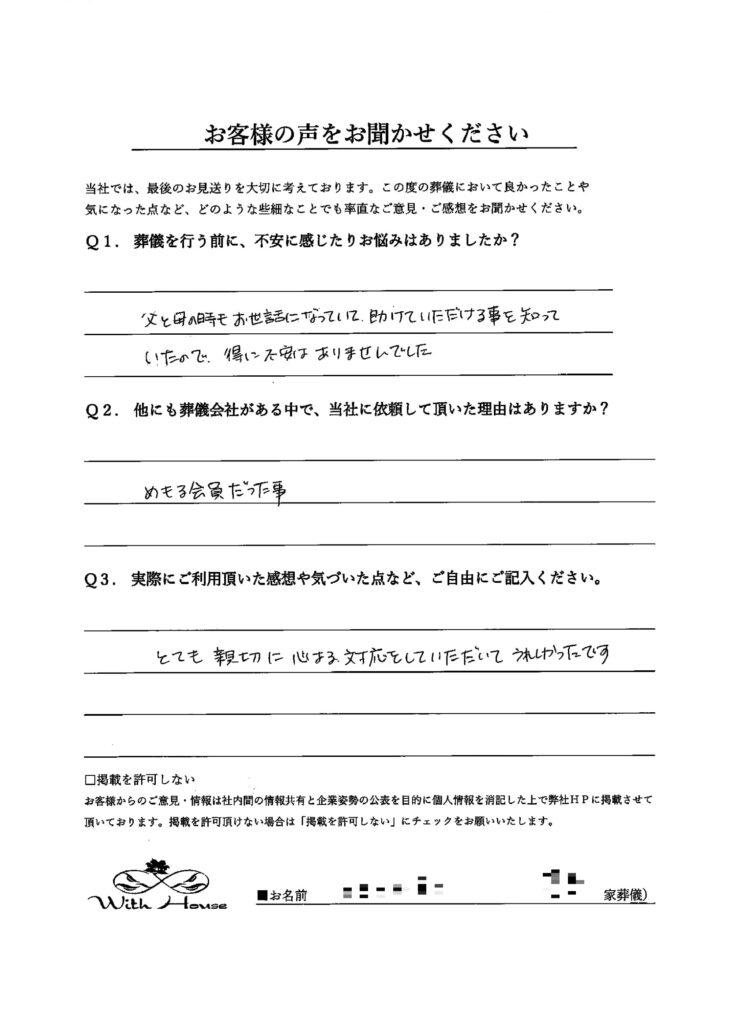 お客様の声をお聞かせください
当社では、最後のお見送りを大切に考えております。この度の葬儀において良かったことや
気になった点など、どのような些細なことでも率直なご意見・ご感想をお聞かせください。
Q1. 葬儀を行う前に、不安に感じたりお悩みはありましたか？
父と母の時もお世話になっていて、助けていただける事を知って
いたので、得に不安はありませんでした
Q2. 他にも葬儀会社がある中で、当社に依頼して頂いた理由はありますか？
めもる会員だった事
Q3. 実際にご利用頂いた感想や気づいた点など、ご自由にご記入ください。
とても親切に心ある対応をしていただいてうれしかったです
□掲載を許可しない
お客様からのご意見・情報は社内間の情報共有と企業姿勢の公表を目的に個人情報を消記した上で弊社HPに掲載させて
頂いております。掲載を許可頂けない場合は「掲載を許可しない」にチェックをお願いいたします。
With House
■お名前 家葬儀）